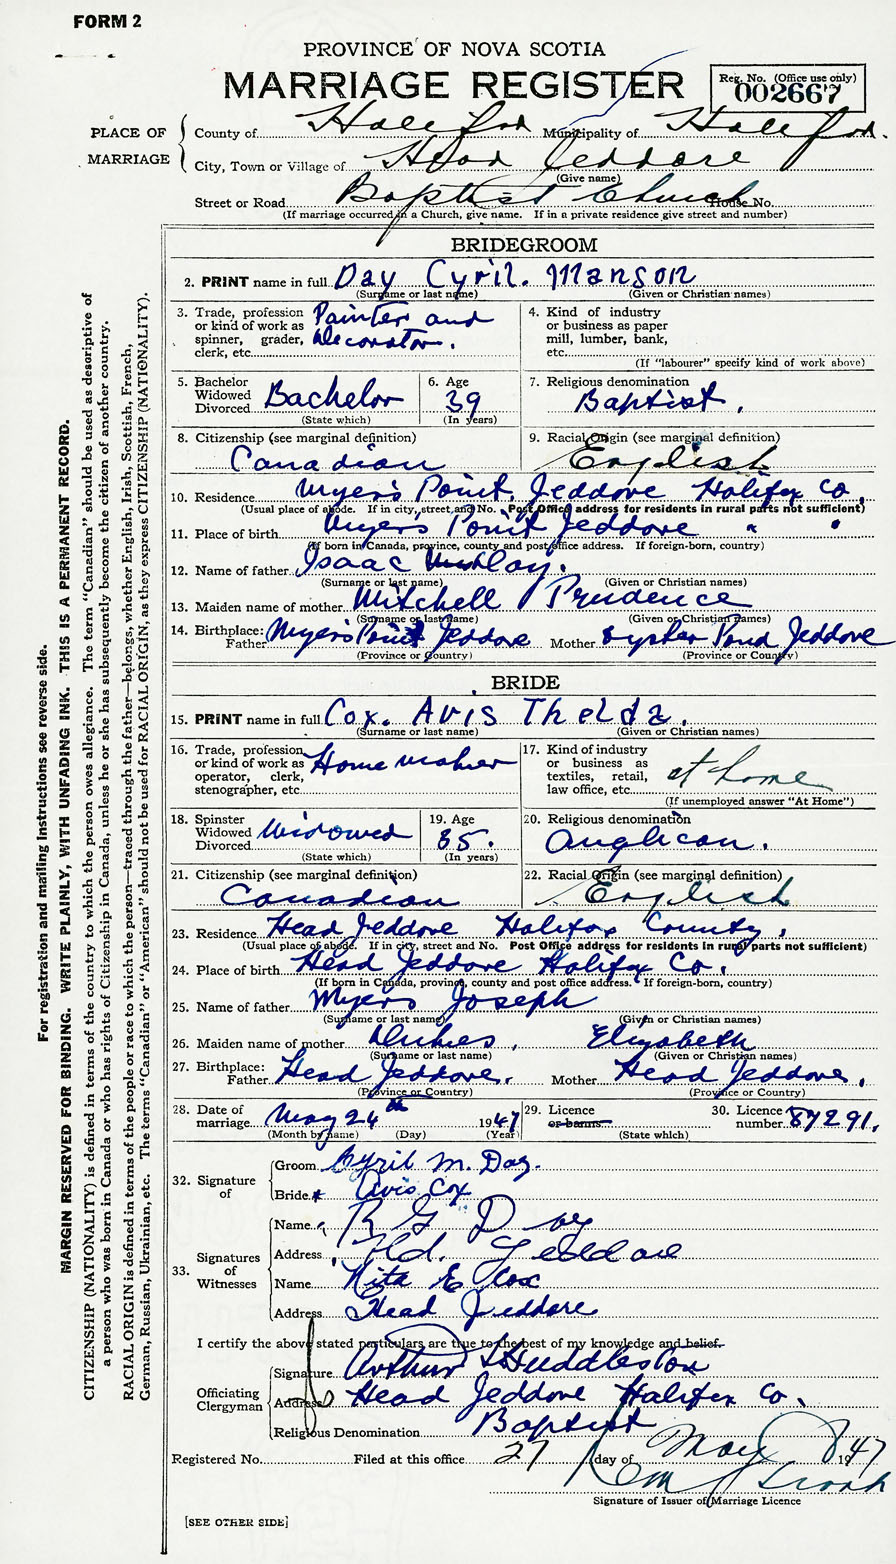 FORM 2
PROVINCE OF NOVA SCOTIA
MARRIAGE REGISTER
Reg. No. (Office use only)
002667
PLACE OF MARRIAGE
County of Halifax Municipality of Halifax.
City, Town or Village of Head Jeddore
(Give name)
Street or Road Baptist Church House No.
(If marriage occurred in a Church, give name. If in a private residence give street and number)
BRIDEGROOM
2. PRINT name in full Day Cyril. Manson
(Surname or last name) (Given or Christian names)
3. Trade, profession or kind of work as spinner, grader, clerk, etc. Painter and Decorator.
4. Kind of industry or business as paper mill, lumber, bank, etc.
(If "labourer" specify kind of work above)
5. Bachelor Widowed Divorced Bachelor
(State which)
6. Age 39
(In years)
7. Religious denomination Baptist.
8. Citizenship (see marginal definition)
Canadian
9. Racial Origin (see marginal definition)
English
10. Residence Myers Point Jeddore Halifax Co.
(Usual place of abode. If in city, street, and No. Post Office address for residents in rural parts not sufficient)
11. Place of birth Myers Point Jeddore " "
(If born in Canada, province, county and post office address. If foreign-born, country)
12. Name of father Isaac Day.
(Surname or last name) (Given or Christian names)
13. Maiden name of mother Mitchell Prudence
(Surname or last name) (Given or Christian names)
14. Birthplace: Father Myers Point Jeddore Mother Oyster Pond Jeddore
(Province or Country) (Province or Country)
BRIDE
15. PRINT name in full Cox. Avis Thelda.
(Surname or last name) (Given or Christian names)
16. Trade, profession or kind of work as operator, clerk, stenographer, etc. Home maker
17. Kind of industry or business as textiles, retail, law office, etc. at home
(If unemployed answer "At Home")
18. Spinster Widowed Divorced Widowed
(State which)
19. Age 35.
(In years)
20. Religious denomination
Anglican.
21. Citizenship (see marginal definition)
Canadian
22. Racial Origin (see marginal definition)
English
23. Residence Head Jeddore Halifax County.
(Usual place of abode. If in city, street and No. Post Office address for residents in rural parts not sufficient)
24. Place of birth Head Jeddore Halifax Co.
(If born in Canada, province, county and post office address. If foreign-born, country)
25. Name of father Myers Joseph
(Surname or last name) (Given or Christian names)
26. Maiden name of mother Elizabeth
(Surname or last name) (Given or Christian names)
27. Birthplace: Father Head Jeddore. Mother Head Jeddore.
(Province or Country) (Province or Country)
28. Date of marriage May 24th 1947
(Month by name) (Day) (Year)
29. Licence or banns
(State which)
30. Licence number 87291.
32. Signature of
Groom Cyril M. Day.
Bride Avis Cox
33. Signatures of Witnesses
Name R G Day
Address Hd. Jeddore
Name Nita E Cox
Address Head Jeddore
I certify the above stated particulars are true to the best of my knowledge and belief.
Officiating Clergyman
Signature Arthur Huddleston
Address Head Jeddore Halifax Co.
Religious Denomination Baptist
Registered No. Filed at this office 27 day of May 1947
Signature of Issuer of Marriage Licence
[SEE OTHER SIDE]
For registration and mailing instructions see reverse side.
MARGIN RESERVED FOR BINDING. WRITE PLAINLY, WITH UNFADING INK. THIS IS A PERMANENT RECORD.
CITIZENSHIP (NATIONALITY) is defined in terms of the country to which the person owes allegiance. The term "Canadian" should be used as descriptive of
a person who was born in Canada or who has rights of Citizenship in Canada, unless he or she has subsequently become the citizen of another country.
RACIAL ORIGIN is defined in terms of the people or race to which the person—traced through the father—belongs, whether English, Irish, Scottish, French,
German, Russian, Ukrainian, etc. The terms "Canadian" or "American" should not be used for RACIAL ORIGIN, as they express CITIZENSHIP (NATIONALITY).